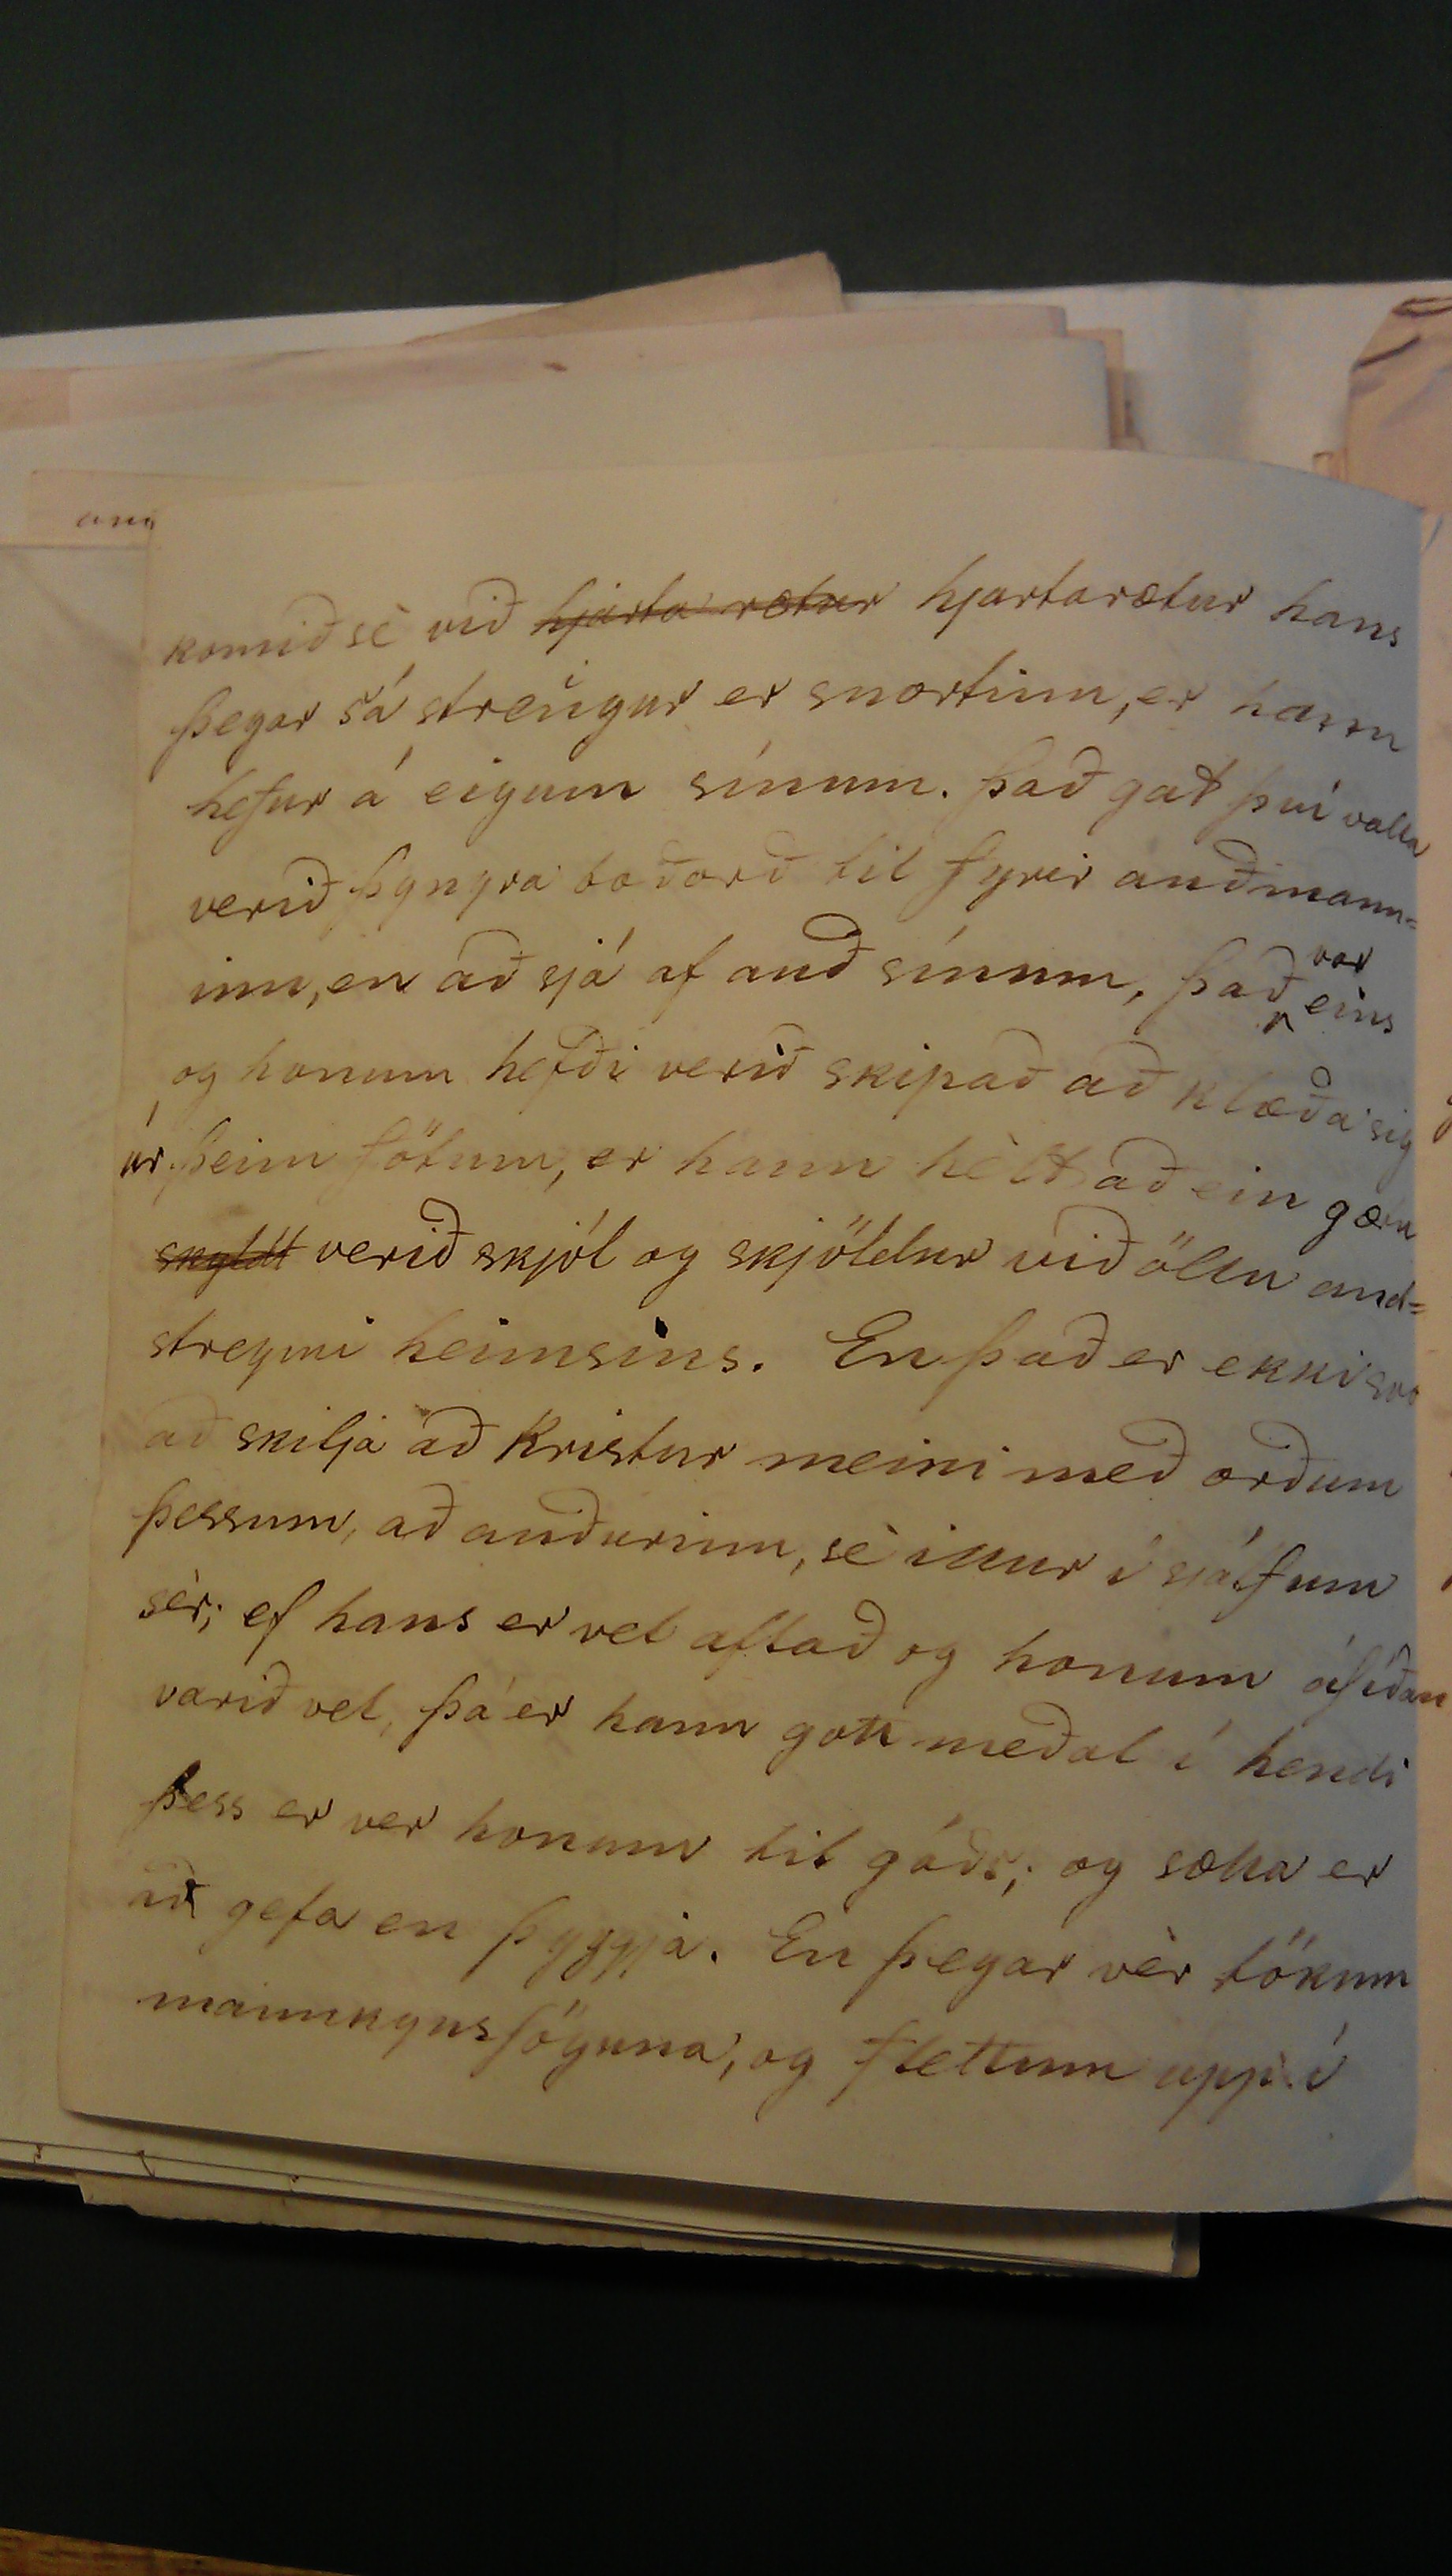 komið sè við hjarta rætur hjartarætur hans
þegar sá streingur er snortinn, er hann
hefur á eigum sínum. Það gat því valla
verið þyngra boðorð til fyrir auðmann=
inn, en að sjá af auð sínum, það var eins
og honum hefði verið skipað að klæða sig
úr þeim fötum, er hann hèlt að ein gæti
skyldi verið skjól og skjöldur við öllu and=
streymi heimsins. En það er ekki svo
að skilja að Kristur meini með orðum
þessum, að auðurinn, sè illur í sjálfum
sèr; ef hans er vel aflað og honum áfíðan
varið vel, þá er hann gott meðal í hendi
þess er ver honum til góðs; og sælla er
að gefa en þyggja. En þegar vèr tökum
mannkynssöguna, og flettum upp í